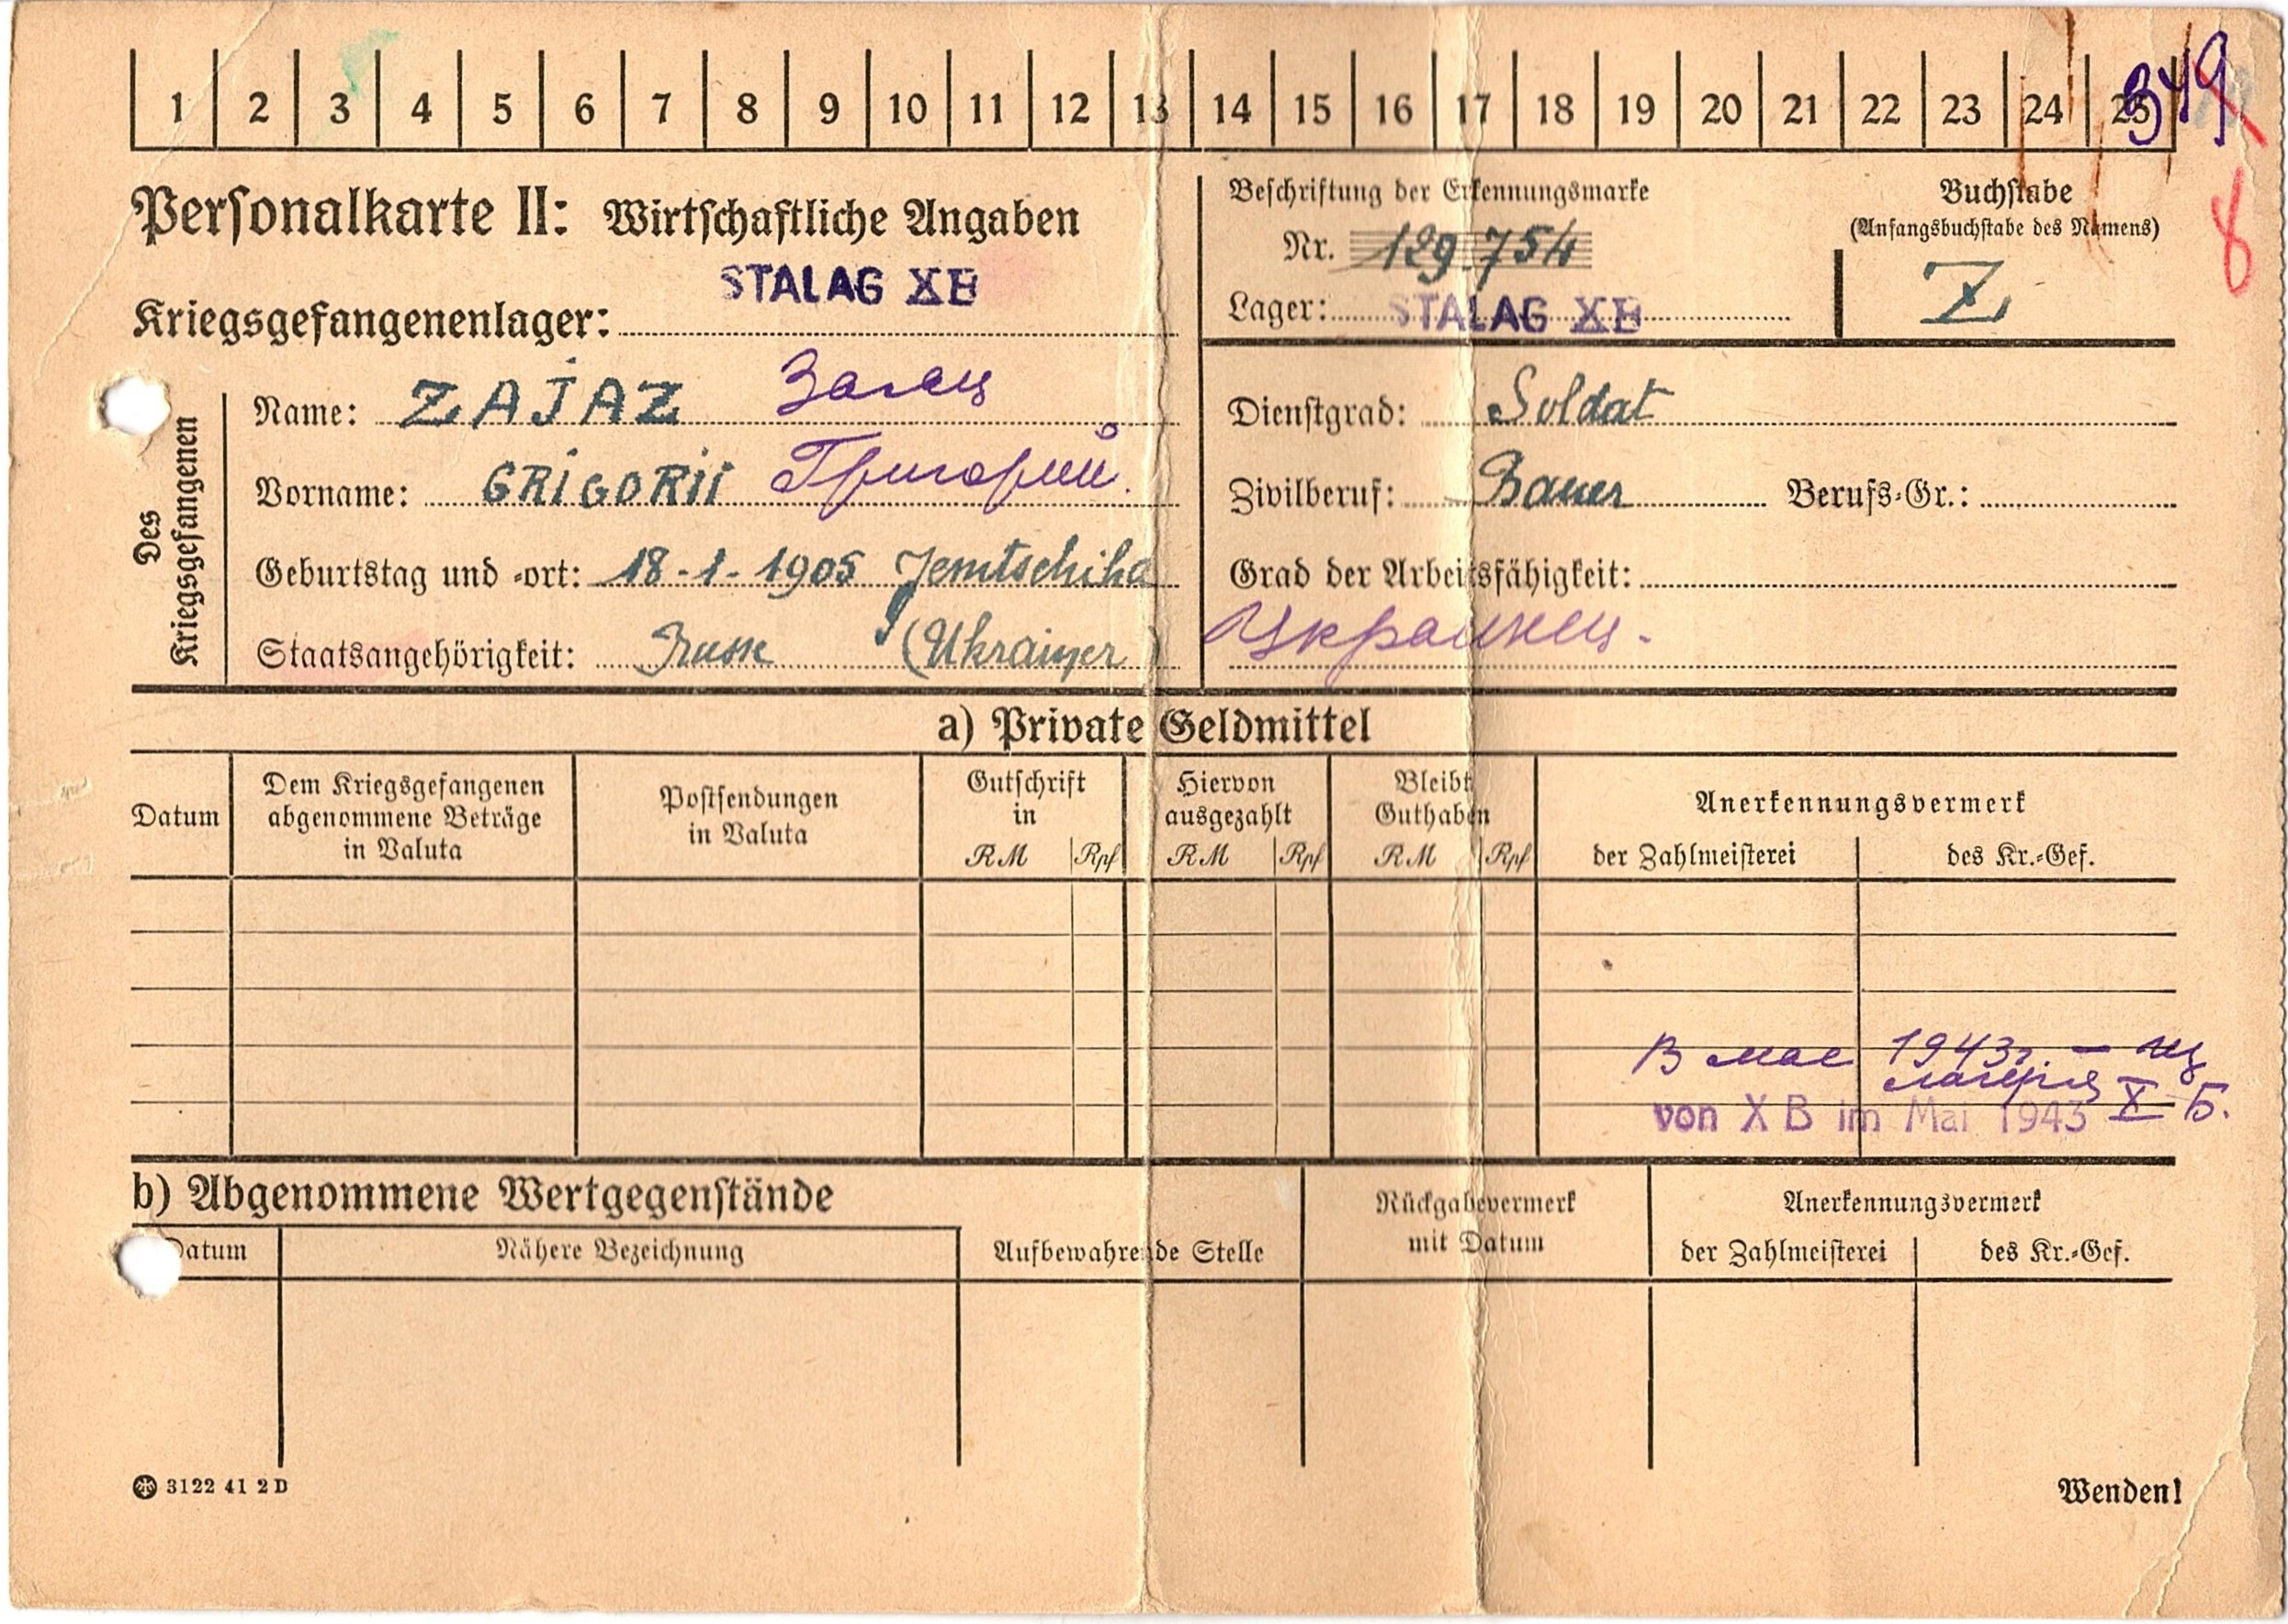 1 2 3 4 5 6 7 8 9 10 11 12 13 14 15 16 17 18 19 20 21 22 23 24 25
349
8
Personalkarte II: Wirtschaftliche Angaben
STALAG XB
Kriegsgefangenenlager:
Beschriftung der Erkennungsmarke
Nr. 129.754
Lager: STALAG XB
Buchstabe
(Anfangsbuchstabe des Namens)
Z
Des Kriegsgefangenen
Name: ZAJAZ Заяц
Vorname: GRIGORII Григорий.
Geburtstag und -ort: 18-1-1905 Jemtschiha
Staatsangehörigkeit: Russe (Ukrainer)
Dienstgrad: Soldat
Zivilberuf: Bauer Berufs-Gr.:
Grad der Arbeitsfähigkeit:
Украинец.
a) Private Geldmittel
Datum
Dem Kriegsgefangenen abgenommene Beträge in Valuta
Postsendungen in Valuta
Gutschrift in RM Rpf
Hiervon ausgezahlt RM Rpf
Bleibt Guthaben RM Rpf
Anerkennungsvermerk
der Zahlmeisterei des Kr.-Gef.
В мае 1943г. – из
лагеря X Б.
von X B im Mai 1943
b) Abgenommene Wertgegenstände
Datum
Nähere Bezeichnung
Aufbewahrende Stelle
Rückgabevermerk mit Datum
Anerkennungsvermerk
der Zahlmeisterei des Kr.-Gef.
3122 41 2 D
Wenden!